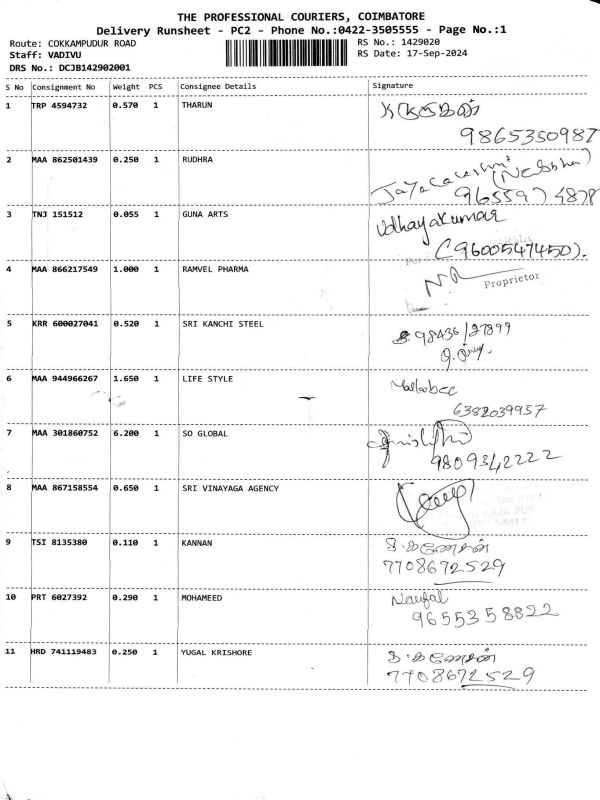 THE PROFESSIONAL COURIERS, COIMBATORE
Delivery Runsheet - PC2 - Phone No.:0422-3505555 - Page No.:1
Route: COKKAMPUDUR ROAD RS No.: 1429020
Staff: VADIVU RS Date: 17-Sep-2024
DRS No.: DCJB142902001
S No Consignment No Weight PCS Consignee Details Signature
1 TRP 4594732 0.570 1 THARUN
9865350987
2 MAA 862501439 0.250 1 RUDHRA
9655974878
3 TNJ 151512 0.055 1 GUNA ARTS Udhayakumar
(9600547450).
4 MAA 866217549 1.000 1 RAMVEL PHARMA
Proprietor
5 KRR 600027041 0.520 1 SRI KANCHI STEEL
98436/27899
6 MAA 944966267 1.650 1 LIFE STYLE
6382039957
7 MAA 301860752 6.200 1 SO GLOBAL
9809342222
8 MAA 867158554 0.650 1 SRI VINAYAGA AGENCY
9 TSI 8135380 0.110 1 KANNAN க.கணேசன்
7708672529
10 PRT 6027392 0.290 1 MOHAMEED Naufal
9655358822
11 HRD 741119483 0.250 1 YUGAL KRISHORE க.கணேசன்
7708672529